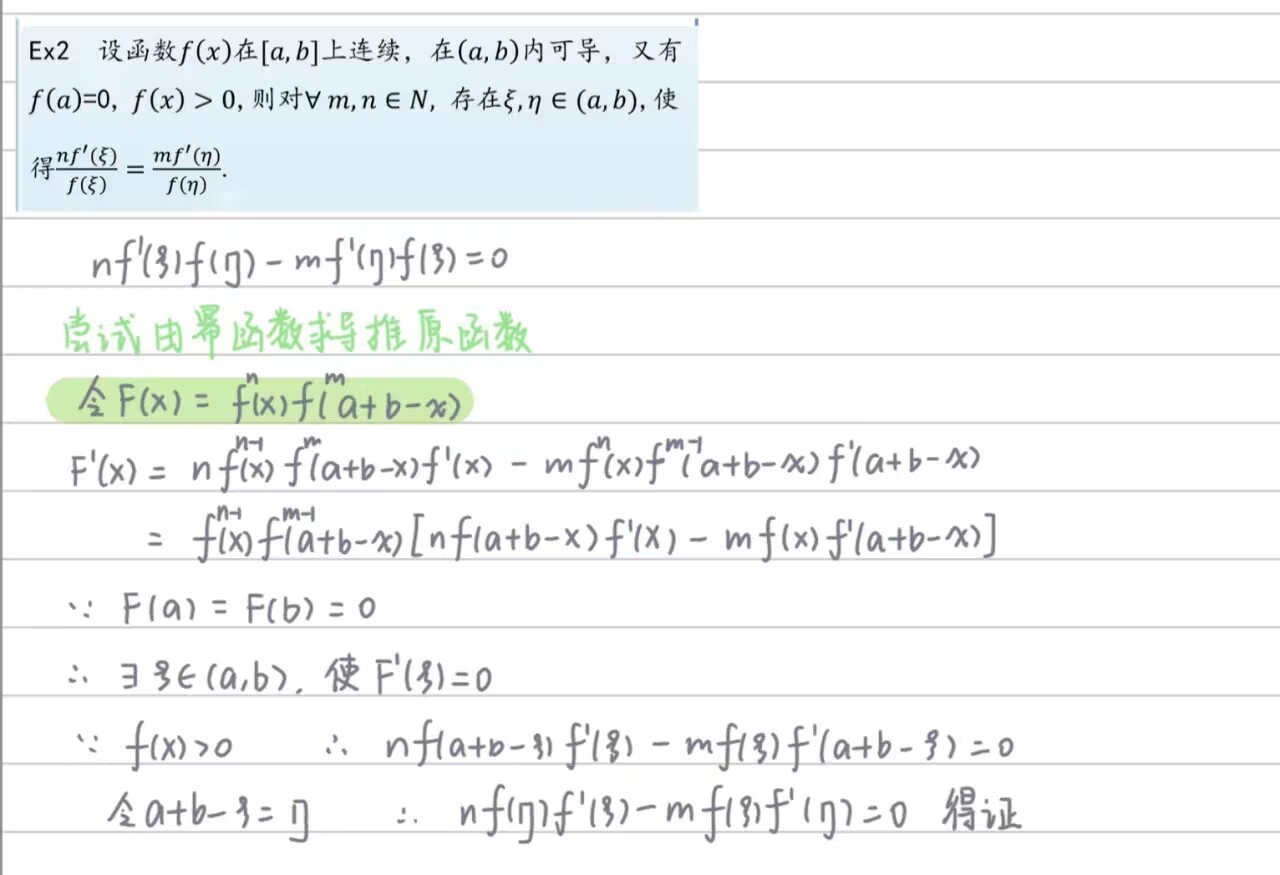 Ex2 设函数f(x)在[a,b]上连续，在(a,b)内可导，又有
f(a)=0, f(x) > 0, 则对∀ m,n ∈ N, 存在ξ,η ∈ (a,b), 使
得nf′(ξ)/f(ξ) = mf′(η)/f(η).
nf'(ξ)f(η) - mf'(η)f(ξ) = 0
尝试由幂函数求导推原函数
令 F(x) = fⁿ(x)fᵐ(a+b-x)
F'(x) = nfⁿ⁻¹(x)fᵐ(a+b-x)f'(x) - mfⁿ(x)fᵐ⁻¹(a+b-x)f'(a+b-x)
= fⁿ⁻¹(x)fᵐ⁻¹(a+b-x)[nf(a+b-x)f'(x) - mf(x)f'(a+b-x)]
∵ F(a) = F(b) = 0
∴ ∃ ξ∈(a,b), 使 F'(ξ)=0
∵ f(x)>0 ∴ nf(a+b-ξ)f'(ξ) - mf(ξ)f'(a+b-ξ) = 0
令a+b-ξ=η ∴ nf(η)f'(ξ)-mf(ξ)f'(η)=0 得证